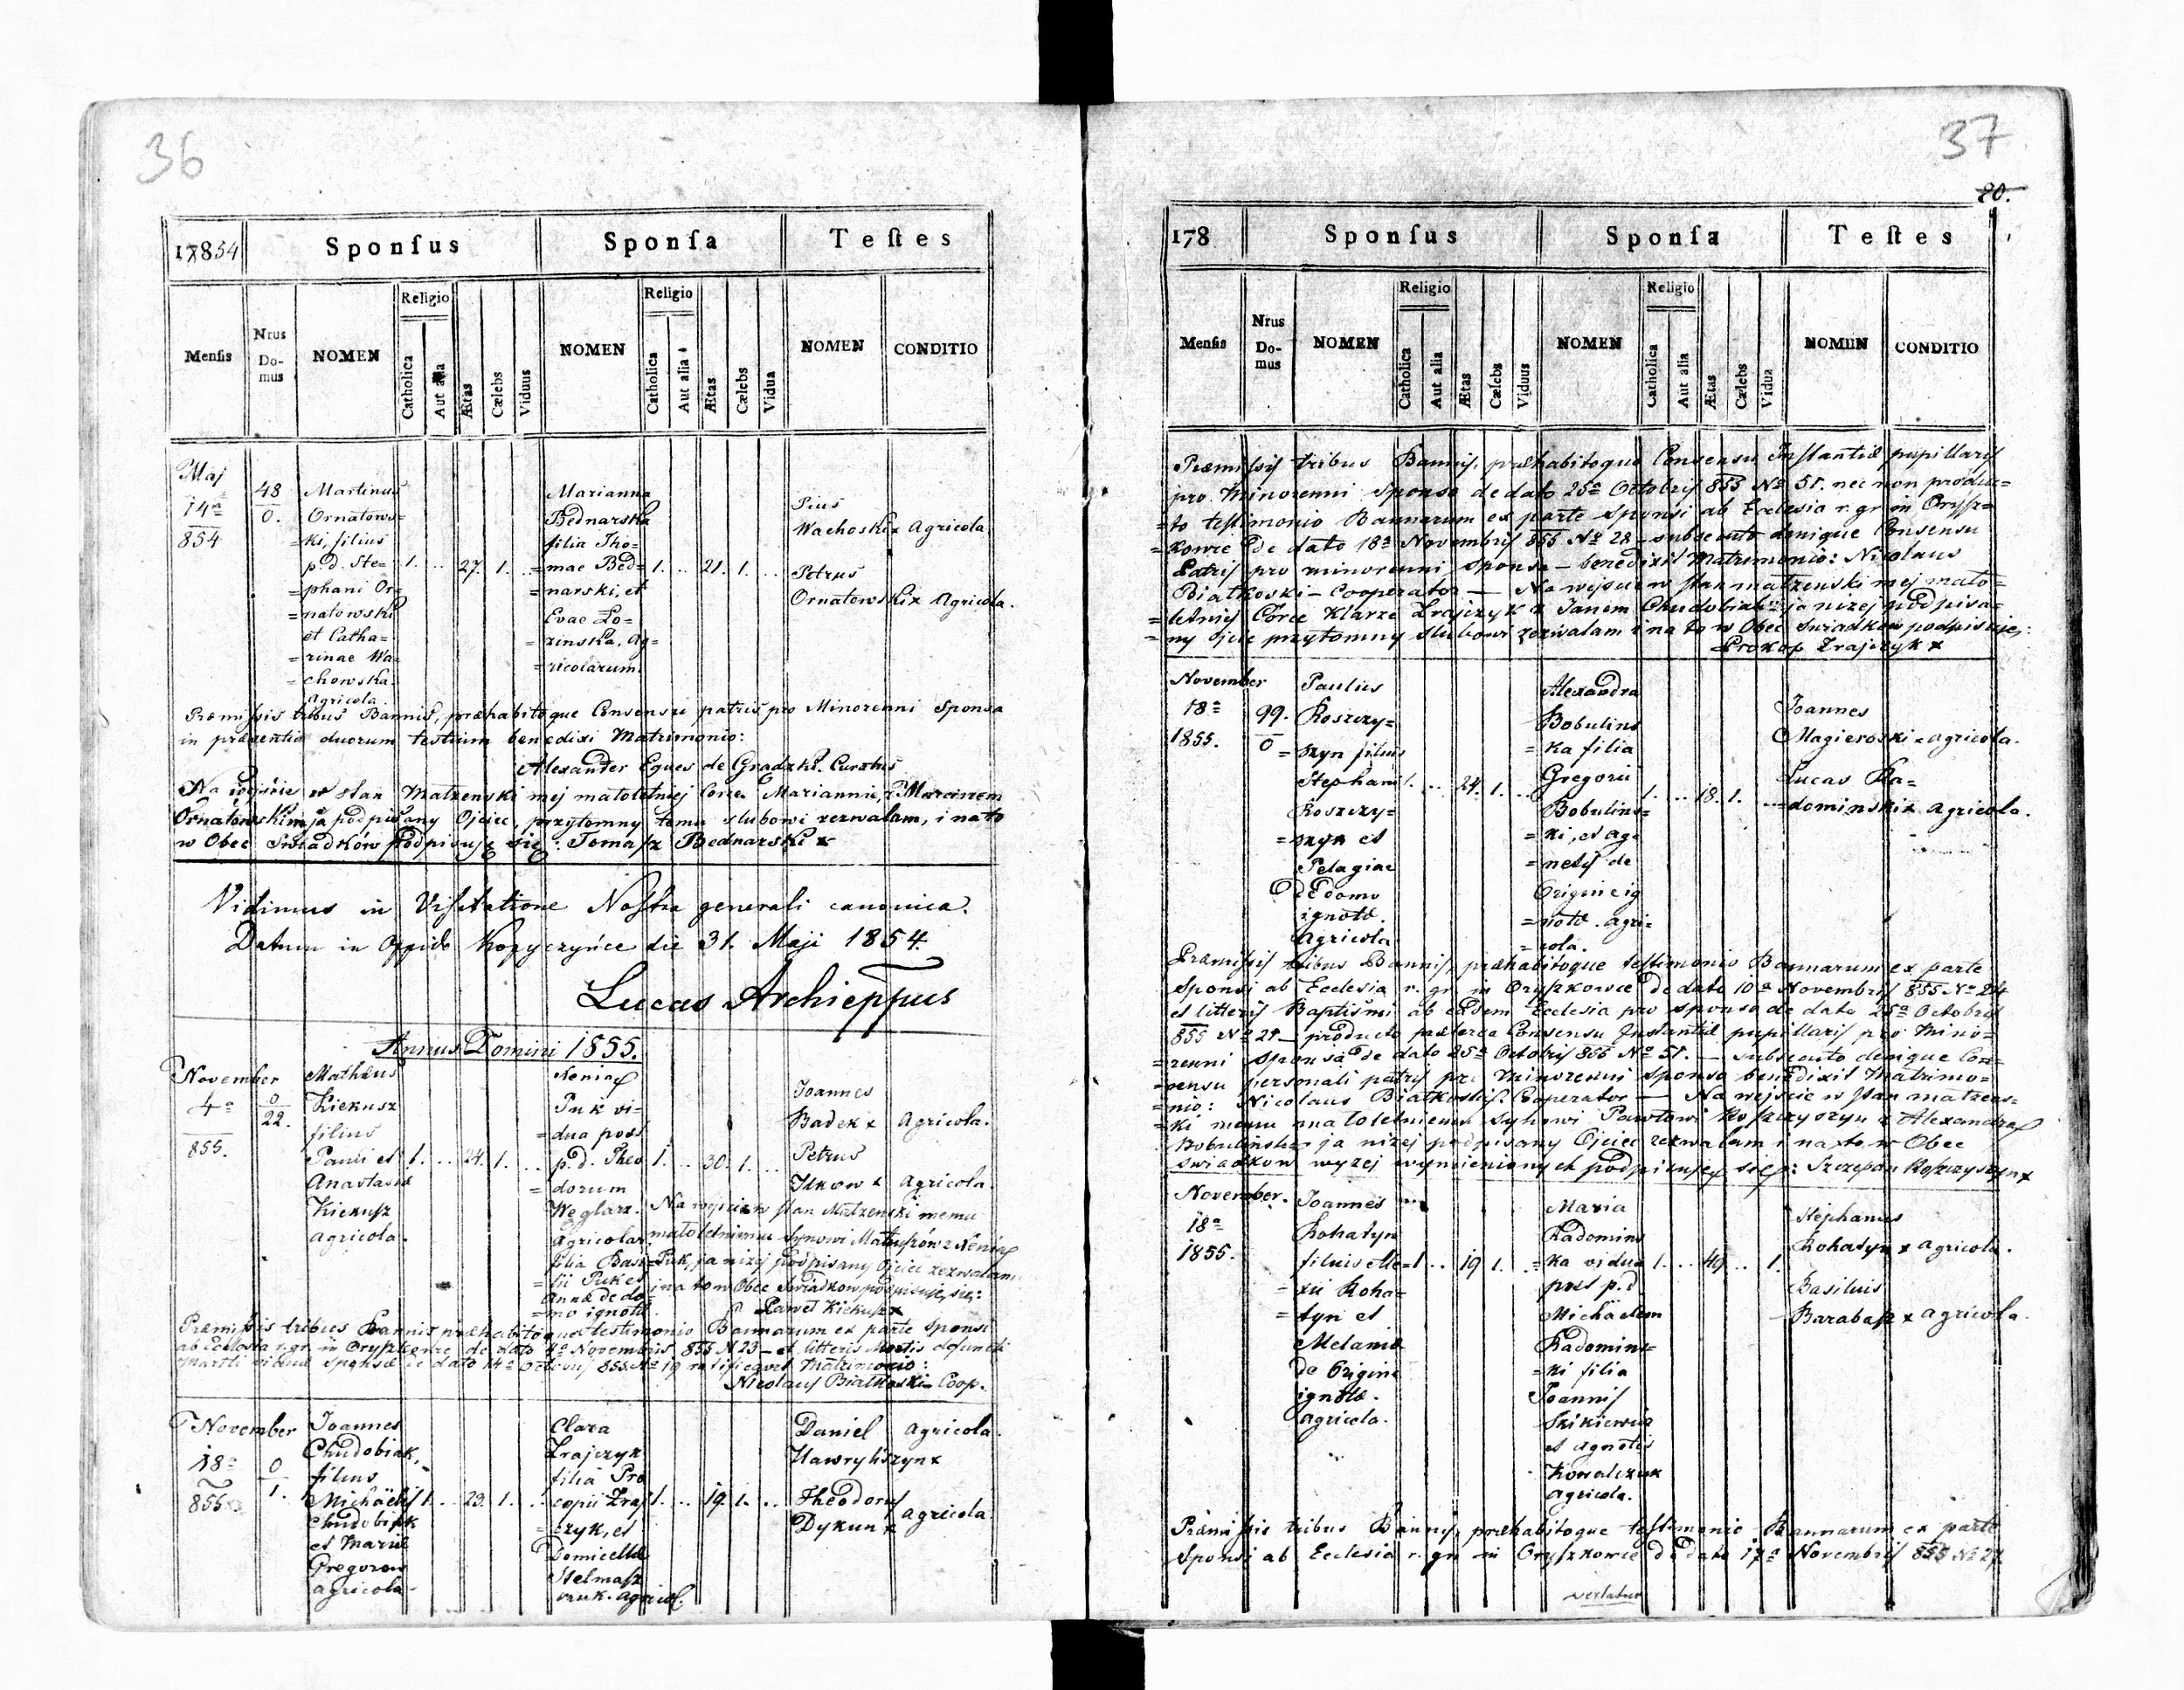 36
17854
Sponsus
Sponsa
Testes
Mensis
Nrus Domus
NOMEN
Religio
Catholica
Aut alia
Ætas
Cælebs
Viduus
NOMEN
Religio
Catholica
Aut alia
Ætas
Cælebs
Vidua
NOMEN
CONDITIO
Maj
14a
854
48
0.
Martinus
Ornatows=
=ki, filius
p.d. Ste=
=phani Or=
=natowski
et Catha=
=rinae Wa=
=chowska.
Agricola
1. .. 27. 1. ..
Marianna
Bednarska
filia Tho=
=mae Bed=
=narski, et
Evae Lo=
=zinska, Ag=
=ricolarum.
1. .. 21. 1. ..
Pius
Wachoski x Agricola
Petrus
Ornatowski x Agricola.
Præmissis tribus Bannis, præhabitoque Consensu patris pro Minorenni Sponsa
in præsentia duorum testium benedixi Matrimonio:
Alexander Eques de Gradzki. Curatus
Na wejście w stan Matzenski mej matoletniej Corce Mariannie, z Marcinem
Ornatowskim ja podpisany Ojciec, przytomny temu slubowi zezwalam, i na to
w Obec Swiadków podpisuję się: Tomasz Bednarski x
Vidimus in Visitatione Nostra generali canonica.
Datum in Oppido Kopyczyńce die 31. Maji 1854.
Lucas Archieppus
Annus Domini 1855.
November
4a
855.
0
22.
Matheus
Kiekusz
filius
Pauli et
Anastasiæ
Kiekusz
agricola.
1. .. 24. 1. ..
Xenia
Puk vi=
=dua post
p.d. Theo
=dorum
Weglarz.
Agricolar
filia Basi=
=lii Puk et
Annæ de do=
=mo ignotæ
1. .. 30. 1. ..
Joannes
Badek x Agricola.
Petrus
Ilkow x Agricola.
Na wejscie w stan Matzenski memu
matoletniemu Synowi Mateuszowi z Xenią
Puk, ja nizej podpisany Ojciec zezwalam
i na to w Obec Swiadkow podpisuję się:
Paweł Kiekusz x
Præmissis tribus Bannis præhabitoque testimonio Bannarum ex parte Sponsi
ab Ecclesia r.gr. in Oryszkowce de dato 4a Novembris 855 N 23 – et litteris Mortis defuncti
Mariti Sponsæ de dato 14a Octobris 855 No 19 ratificavit Matrimonio:
Nicolaus Białkoski Coop.
November
18a
855
0
1.
Joannes
Chudobiak,
filius
Michaëlis
Chudobiak
et Mariæ
Gregorow
agricola.
1. .. 23. 1. ..
Clara
Zrajczyk
filia Pro
copii Zraj
=czyk, et
Domicellæ
Stelmasz
czuk. agricol.
1. .. 19. 1. ..
Daniel Agricola.
Hawryliszyn x
Theodorus
Dykun x agricola
37
20.
178
Sponsus
Sponsa
Testes
Mensis
Nrus Domus
NOMEN
Religio
Catholica
Aut alia
Ætas
Cælebs
Viduus
NOMEN
Religio
Catholica
Aut alia
Ætas
Cælebs
Vidua
NOMEN
CONDITIO
Præmissis tribus Bannis, præhabitoque Consensu Instantiæ pupillaris
pro Minorenni Sponso de dato 25a Octobris 855 No 51. nec non produc=
=to testimonio Bannarum ex parte Sponsi ab Ecclesia r.gr. in Orysz=
=kowce de dato 18a Novembris 855 No 28 – subsecuto denique Consensu
Patris pro minorenni Sponsa – benedixit Matrimonio: Nicolaus
Białkoski – Cooperator — Na wejscie w stan matzenski mej mato=
=letniej Córce Klarze Zrajczyk z Janem Chudobiak ja nizej podpisa=
=ny ojciec przytomny slubowi zezwalam i na to w Obec Swiadkow podpisuje:
Prokop Zrajczyk x
November
18a
1855.
99.
0
Paulus
Koszczy=
=szyn filius
Stephani
Koszczy=
=szyn et
Pelagiae
de Domo
ignotæ.
Agricola
1. .. 24. 1. ..
Alexandra
Bobulins
=ka filia
Gregorii
Bobulins=
=ki, et Ag=
=netis de
Origine ig
=notæ. agri=
=cola.
1. .. 18. 1. ...
Joannes
Magieroski x agricola.
Lucas Ra=
=dominski x Agricola.
Præmissis tribus Bannis, præhabitoque testimonio Bannarum ex parte
Sponsi ab Ecclesia r.gr. in Oryszkowce de dato 10a Novembris 855 No 24
et litteris Baptismi ab eadem Ecclesia pro sponso de dato 25a Octobris
855 No 21 – producto præterea Consensu Instantiæ pupillaris pro Mino=
=renni Sponsa de dato 25a Octobris 855 No 51. — subsecuto denique Con=
=sensu personali patris pro minorenni Sponso benedixit Matrimo=
=nio: Nicolaus Białkoski Cooperator — Na wejscie w stan matzens=
=ki memu matoletniemu Synowi Pawłowi Koszczyszyn z Alexandrą
Bobulinską ja nizej podpisany Ojciec zezwalam i na to w Obec
Swiadkow wyzej wymienionych podpisuję się: Szczepan Koszczyszyn x
November.
18a
1855.
Joannes
Rohatyn
filius Ale=
=xii Roha=
=tyn et
Melaniæ
de Origine
ignotæ.
agricola.
1 .. 19 1. ..
Maria
Radomins
=ka vidua
post p.d.
Michaëlem
Radomins=
=ki filia
Joannis
Szikiewicz
et Agnetis
Kowalczuk
agricola.
1. .. 49 .. 1.
Stephanus
Rohatyn x agricola.
Basilius
Barabasz x agricola.
Præmissis tribus Bannis, præhabitoque testimonio Bannarum ex parte
Sponsi ab Ecclesia r.gr. in Oryszkowce de dato 17a Novembris 855 No 27
vertatur